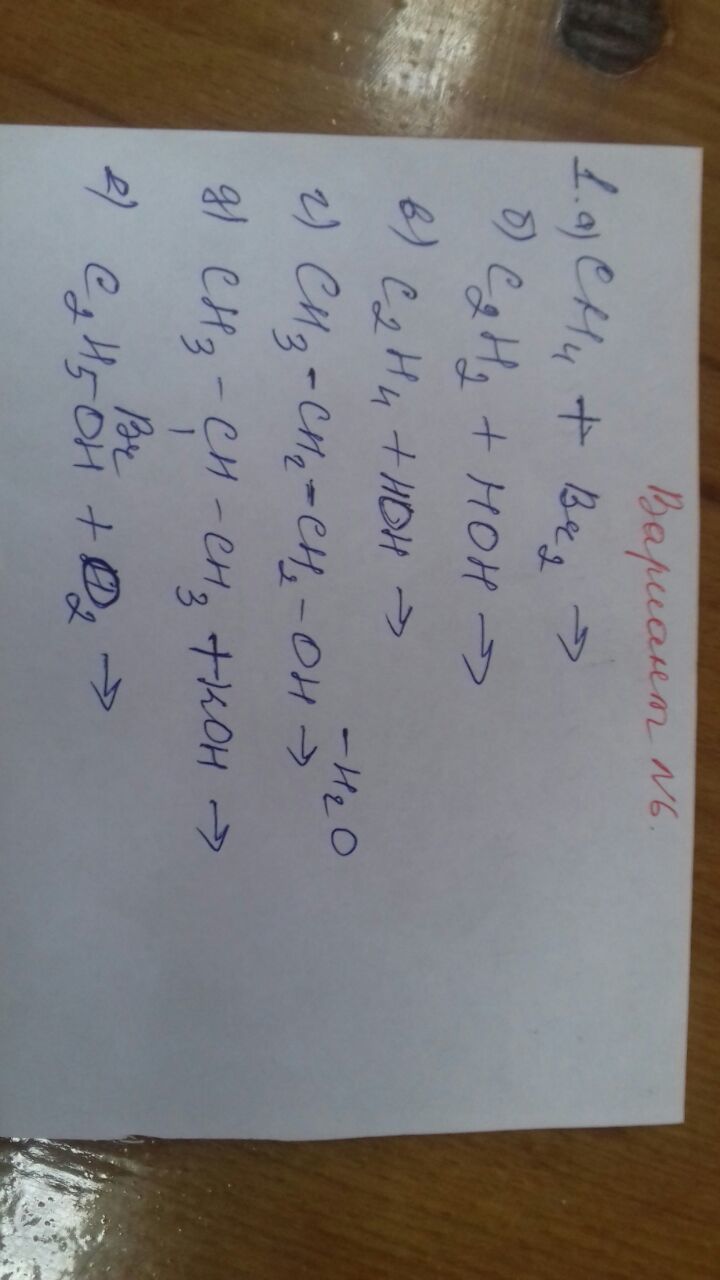 Вариант N6.
1. а) CH4 + Br2 →
б) C2H2 + HOH →
в) C2H4 + HOH →
-H2O
г) CH3-CH2-CH2-OH →
д) CH3-CH-CH3 + KOH →
Br
е) C2H5-OH + O2 →